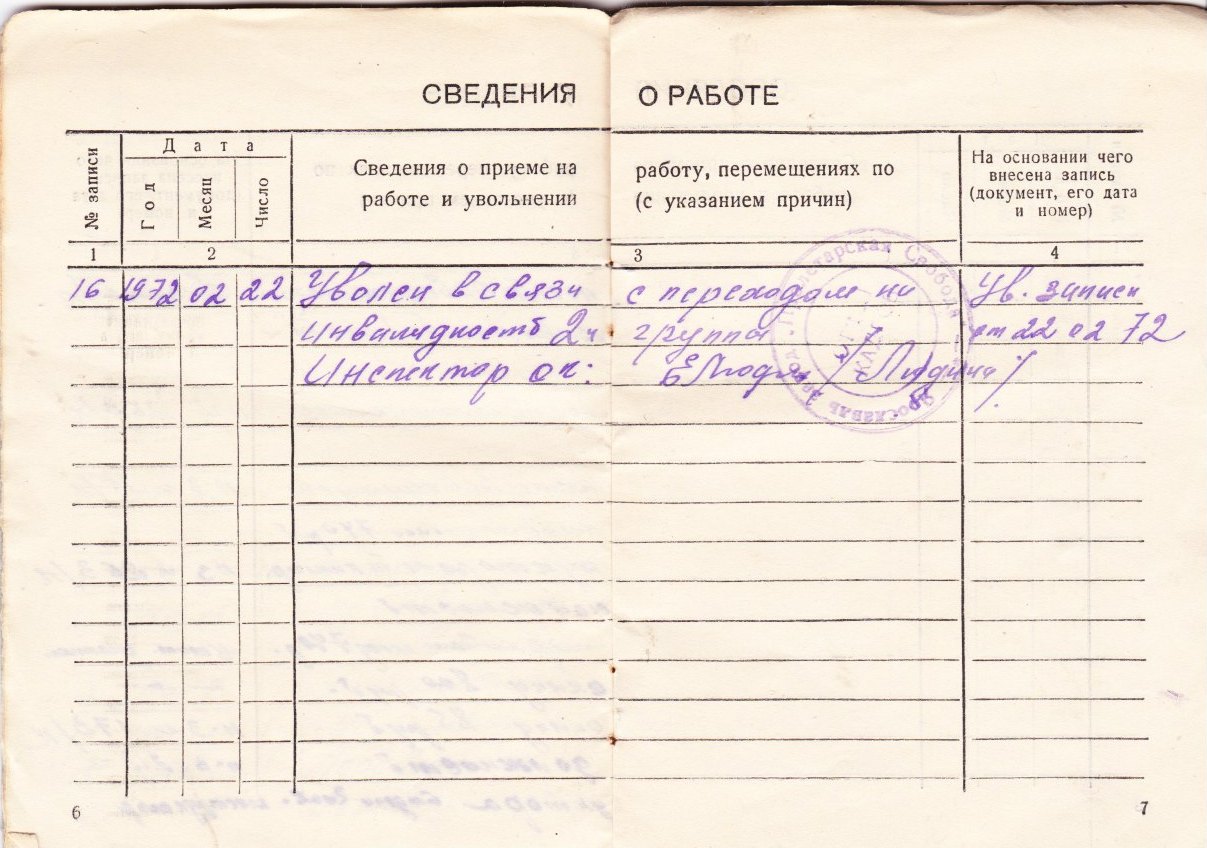 СВЕДЕНИЯ О РАБОТЕ
№ записи
Дата
Год
Месяц
Число
Сведения о приеме на работу, перемещениях по
работе и увольнении (с указанием причин)
На основании чего
внесена запись
(документ, его дата
и номер)
1 2 3 4
16 1972 02 22 Уволен в связи с переходом на Ув. записка
инвалидность 2й группы от 22 02 72
Инспектор ок:
Ярославль завод
6
7